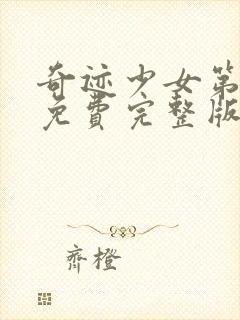 奇迹少女第
免费完整版
齊橙